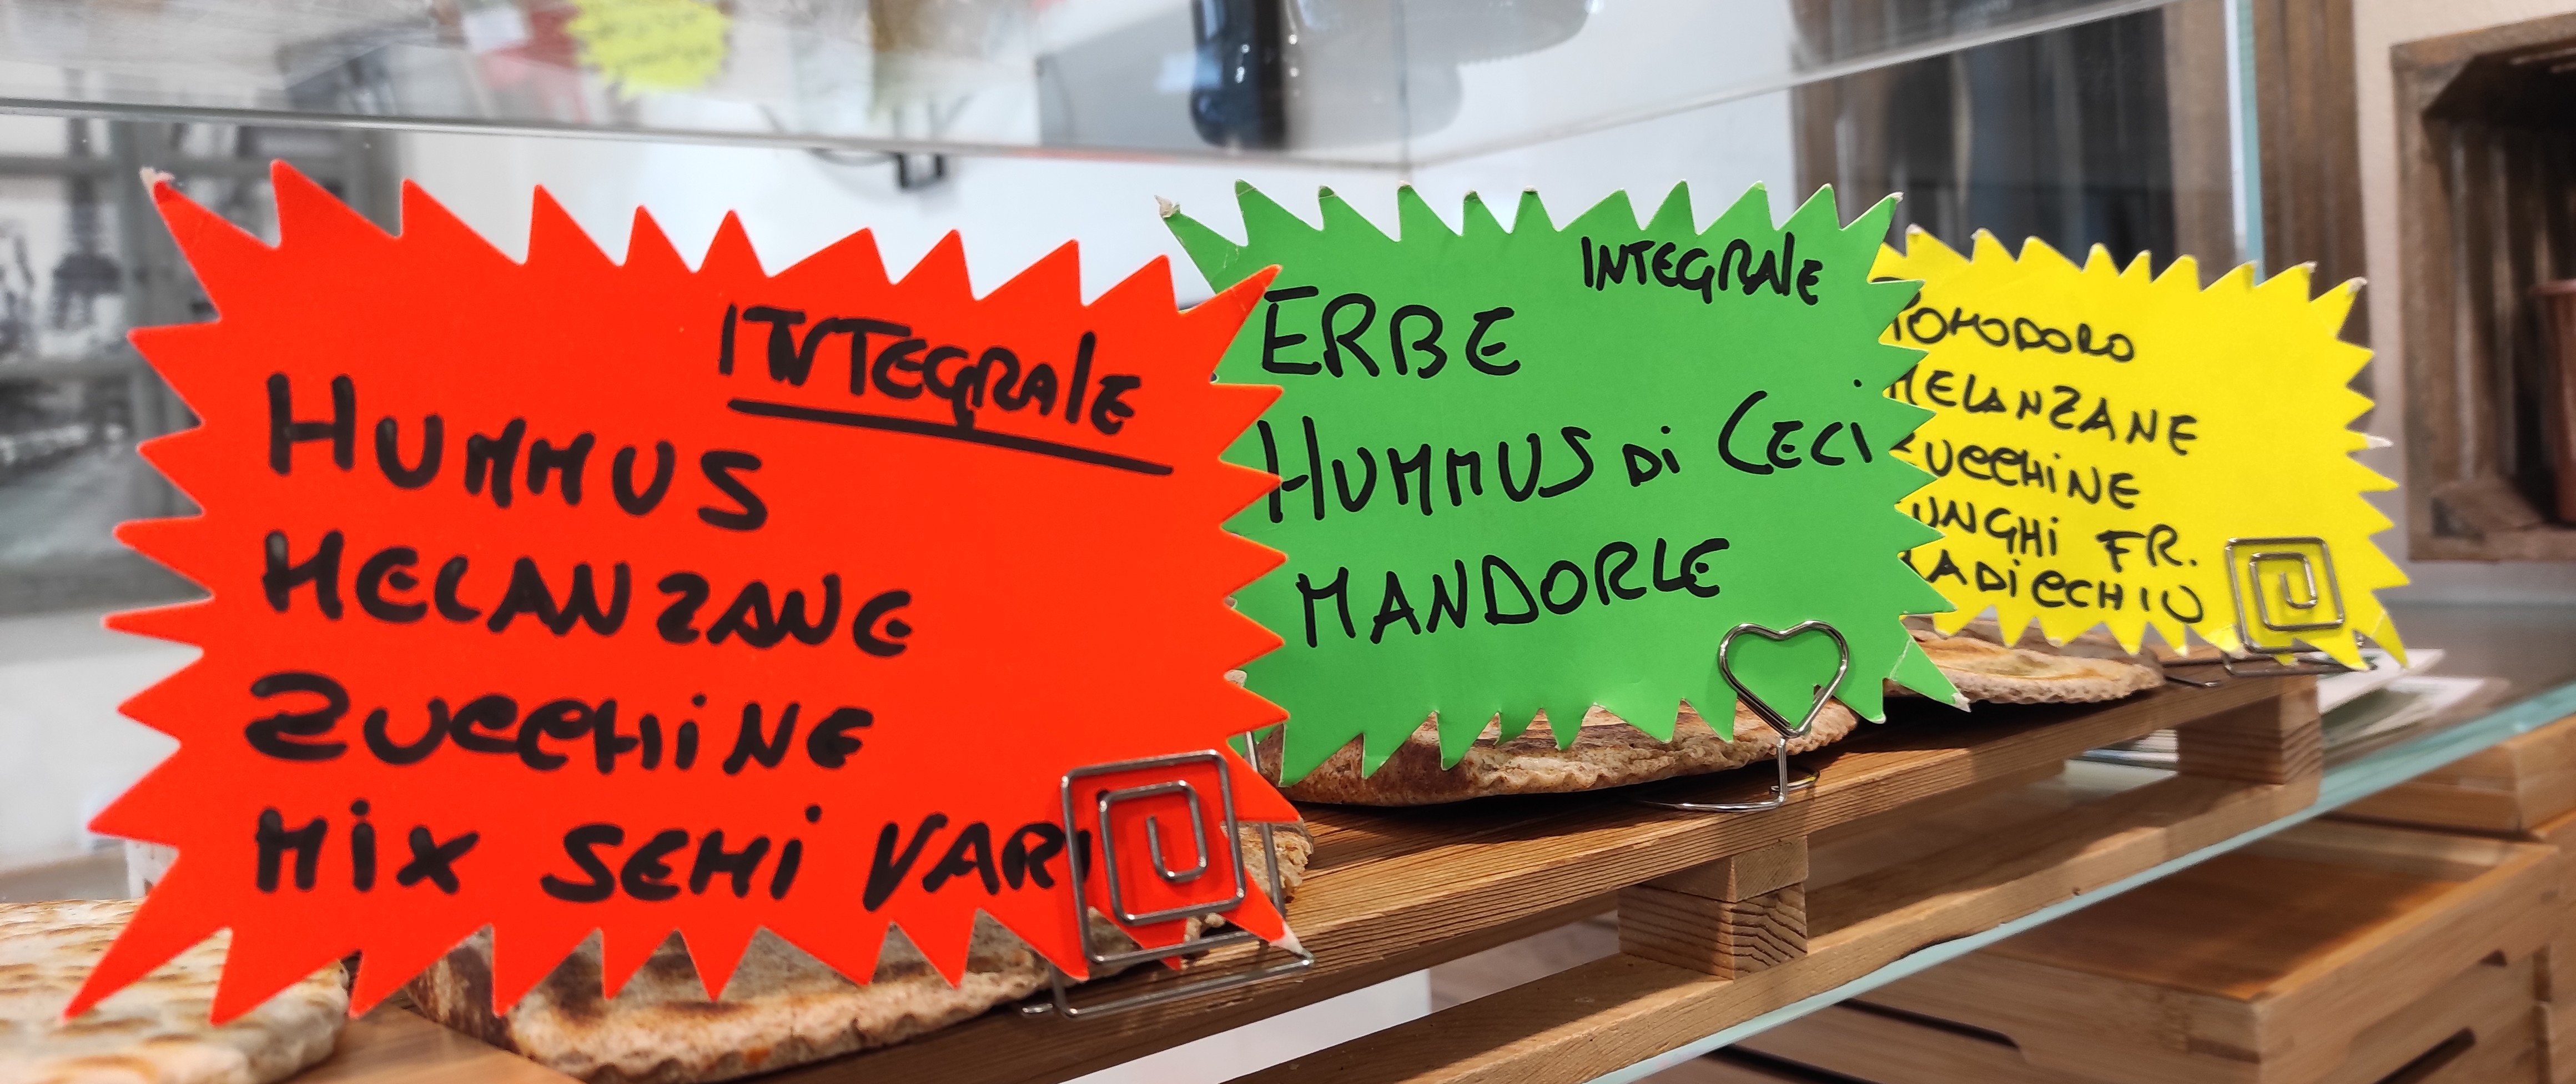 INTEGRAlE
HUMMUS
MELANZANE
ZUCCHiNE
MiX SEMi VARi
INTEGRAlE
ERBE
HUMMUS Di CECi
MANDORLE
POMODORO
MELANZANE
ZUCCHiNE
FUNGHi FR.
RADiCCHIO